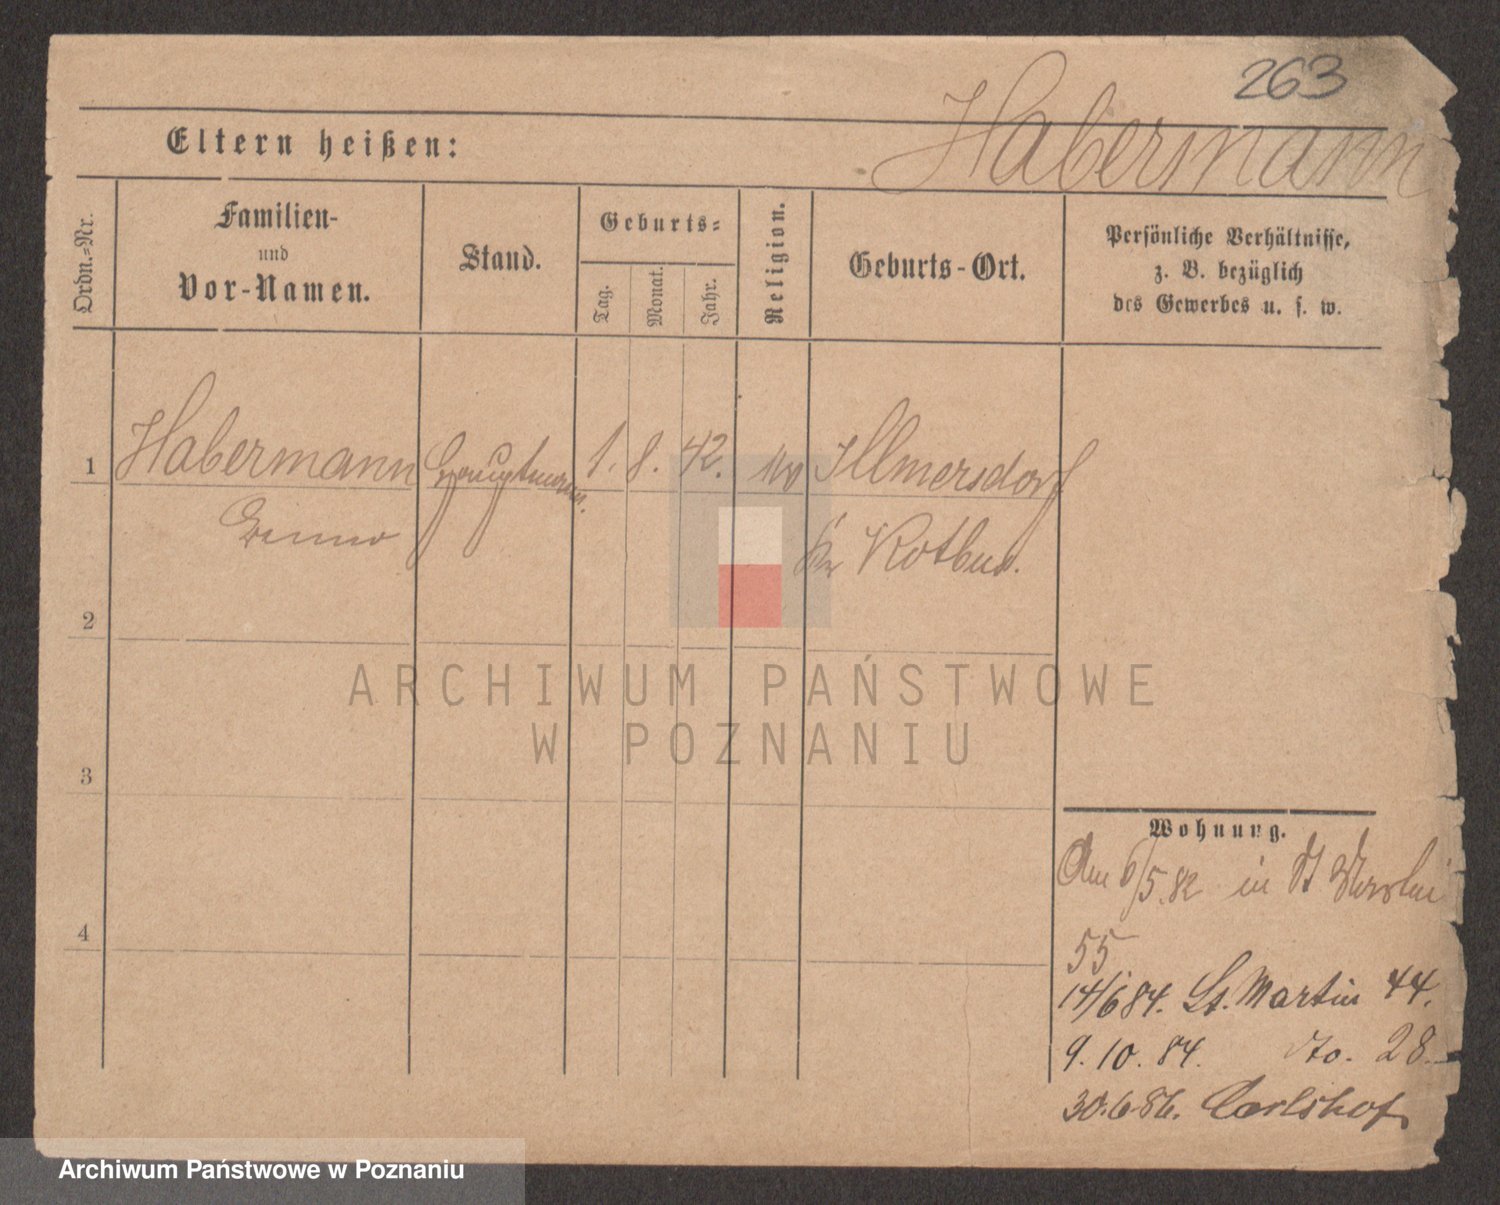 263
Habermann
Eltern heißen:
Ordn.-Nr.
Familien-
und
Vor-Namen.
Stand.
Geburts-
Tag.
Monat.
Jahr.
Religion.
Geburts-Ort.
Persönliche Verhältnisse,
z. B. bezüglich
des Gewerbes u. s. w.
1 Habermann Hauptmann. 1. 8. 42. Illmersdorf
Kr Kotbus.
2
3
4
ARCHIWUM PAŃSTWOWE
W POZNANIU
Wohnung.
Am 6/5.82 in St
55
14/6 84. St. Martin 44.
9. 10. 84. do. 28.
30.6.86. Carlshof
Archiwum Państwowe w Poznaniu